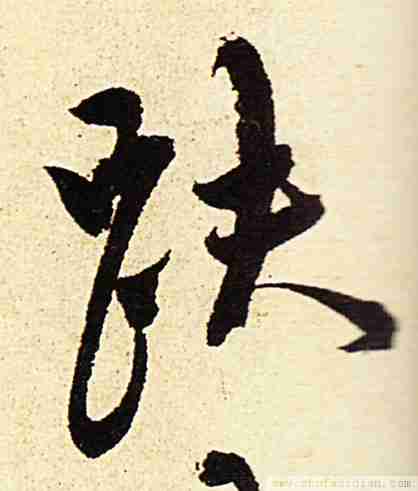 缺
www.shufazidian.com